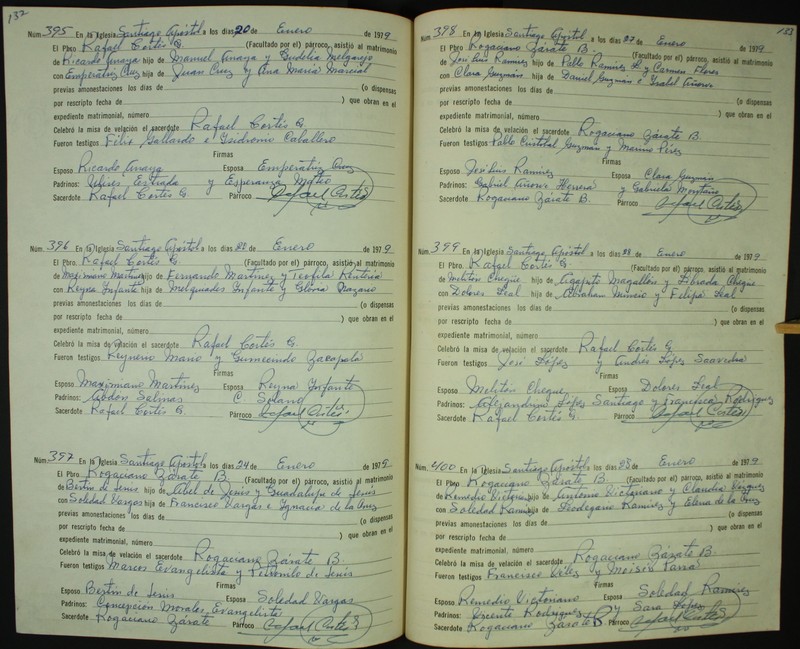 132
Núm. 395 En la Iglesia Santiago Apóstol a los días 20 de Enero de 1979
El Pbro. Rafael Cortés G. (Facultado por el) párroco, asistió al matrimonio
de Ricardo Anaya hijo de Manuel Anaya y Eudelia Melgarejo
con Emperatriz Cruz hijo de Juan Cruz y Ana María Marcial
previas amonestaciones los días de (o dispensas
por rescripto fecha de ) que obran en el
expediente matrimonial, número
Celebró la misa de velación el sacerdote Rafael Cortés G.
Fueron testigos Félix Gallardo e Isidromo Caballero
Firmas
Esposo Ricardo Anaya Esposa Emperatriz Cruz
Padrinos: Estrada y Esperanza Mateo
Sacerdote Rafael Cortés G. Párroco Rafael Cortés G.
Núm. 396 En la Iglesia Santiago Apóstol a los días de Enero de 1979
El Pbro. Rafael Cortés G. (Facultado por el) párroco, asistió al matrimonio
de Maximiano Martínez hijo de Fernando Martínez y Teofila Rentería
con Reyna Infante hijo de Melquiades Infante y Gloria
previas amonestaciones los días de (o dispensas
por rescripto fecha de ) que obran en el
expediente matrimonial, número
Celebró la misa de velación el sacerdote Rafael Cortés G.
Fueron testigos Mario y Gumecindo
Firmas
Esposo Maximiano Martínez Esposa Reyna Infante
Padrinos: Abdon Salinas C Solano
Sacerdote Rafael Cortés G. Párroco Rafael Cortés G.
Núm. 397 En la Iglesia Santiago Apóstol a los días 24 de Enero de 1979
El Pbro. Rogaciano Zárate B. (Facultado por el) párroco, asistió al matrimonio
de Bertín de Jesús hijo de Abel de Jesús y Guadalupe de Jesús
con Soledad Vargas hijo de Francisco Vargas e Ignacia de la Cruz
previas amonestaciones los días de (o dispensas
por rescripto fecha de ) que obran en el
expediente matrimonial, número
Celebró la misa de velación el sacerdote Rogaciano Zárate B.
Fueron testigos Marcos Evangelista y Petronilo de Jesús
Firmas
Esposo Bertín de Jesús Esposa Soledad Vargas
Padrinos: Concepción Morales Evangelista
Sacerdote Rogaciano Zárate Párroco Rafael Cortés G
133
Núm. 398 En la Iglesia Santiago Apóstol a los días 27 de Enero de 1979
El Pbro. Rogaciano Zárate B. (Facultado por el) párroco, asistió al matrimonio
de José Luis Ramírez hijo de Pablo Ramírez L. y Carmen Flores
con Clara Guzmán hijo de Daniel Guzmán e Isabel
previas amonestaciones los días de (o dispensas
por rescripto fecha de ) que obran en el
expediente matrimonial, número
Celebró la misa de velación el sacerdote Rogaciano Zárate B.
Fueron testigos Pablo Cristóbal Guzmán y Marino Pérez
Firmas
Esposo José Luis Ramírez Esposa Clara Guzmán
Padrinos: Gabriel Herrera y Gabriela Montaño
Sacerdote Rogaciano Zárate B. Párroco Rafael Cortés
Núm. 399 En la Iglesia Santiago Apóstol a los días 28 de Enero de 1979
El Pbro. Rafael Cortés G. (Facultado por el) párroco, asistió al matrimonio
de Melitón Cheque hijo de Agapito Magallón y Librada Cheque
con Dolores Leal hijo de Abraham y Felipa Leal
previas amonestaciones los días de (o dispensas
por rescripto fecha de ) que obran en el
expediente matrimonial, número
Celebró la misa de velación el sacerdote Rafael Cortés G
Fueron testigos José López y Andrés López Saavedra
Firmas
Esposo Melitón Cheque Esposa Dolores Leal
Padrinos: Alejandrino López Santiago y Francisca Rodríguez
Sacerdote Rafael Cortés G. Párroco Rafael Cortés G
Núm. 400 En la Iglesia Santiago Apóstol a los días 28 de Enero de 1979
El Pbro. Rogaciano Zárate B. (Facultado por el) párroco, asistió al matrimonio
de Remedio Victoriano hijo de Antonio Victoriano y Claudia Vázquez
con Soledad Ramírez hijo de Leodegario Ramírez y Elena de la Cruz
previas amonestaciones los días de (o dispensas
por rescripto fecha de ) que obran en el
expediente matrimonial, número
Celebró la misa de velación el sacerdote Rogaciano Zárate B.
Fueron testigos Francisco Vélez y Moisés Parra
Firmas
Esposo Remedio Victoriano Esposa Soledad Ramírez
Padrinos: Vicente Rodríguez y Sara López
Sacerdote Rogaciano Zárate B. Párroco Rafael Cortés G